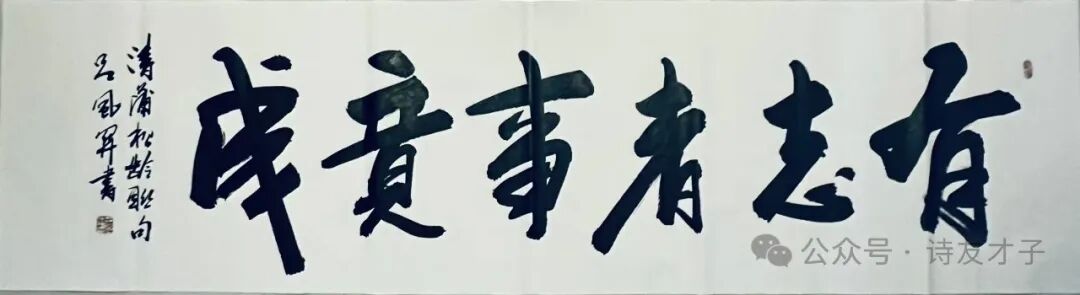 有志者事竟成
清蒲松龄联句
吕风军书
公众号·诗友才子